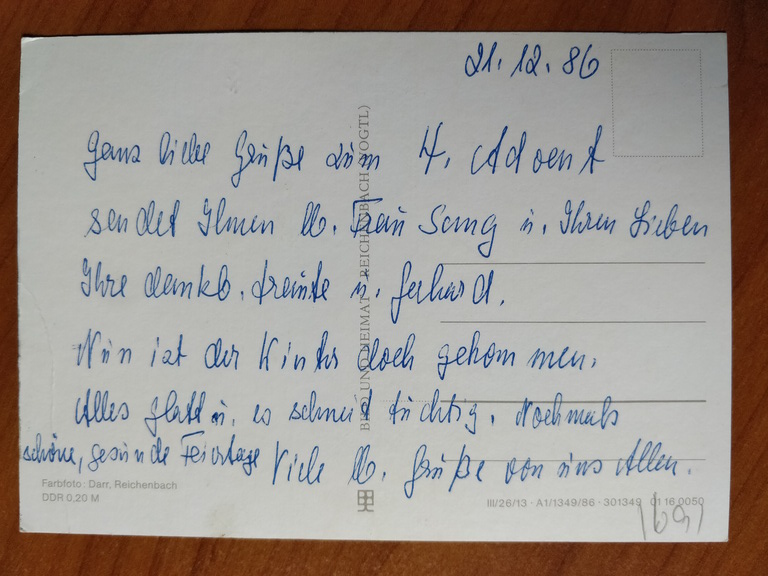 21. 12. 86
Ganz liebe Grüße zum 4. Advent
sendet Ihnen lb. Frau Sang u. Ihren Lieben
Ihre dankb. Traute u. Gerhard.
Nun ist der Winter doch gekommen.
Alles glatt u. es schneit tüchtig. Nochmals
schöne, gesunde Feiertage Viele lb. Grüße von uns Allen.
BILD UND HEIMAT REICHENBACH (VOGTL)
Farbfoto: Darr, Reichenbach
DDR 0,20 M
III/26/13 · A1/1349/86 · 301349 01 16 0050